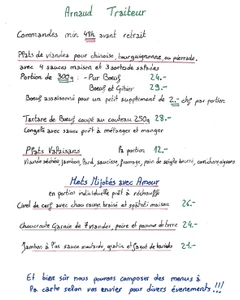 Arnaud Traiteur
Commandes min 48h avant retrait
Plats de viandes pour chinoise, bourguignonne, ou pierrade,
avec 4 sauces maison et 3 sortes de salades
Portion de 300g : - Pur Boeuf 24.-
Boeuf et Gibier 29.-
Boeuf assaisonné pour un petit supplément de 2.- chf par portion
Tartare de Boeuf coupé au couteau 250g 28.-
Congelé avec sauce prêt à mélanger et manger
Plats Valaisans Pa portion 12.-
Viande séchée, jambon, lard, saucisse, fromage, pain de seigle beurré,
Plats Mijotés avec Amour
en portion individuelle prêt à réchauffé
Carré de cerf avec chou rouge braisé et spätzli maison 26.-
Choucroute Garnie de 7 viandes, poire et pomme de terre 24.-
Jambon à l'os sauce moutarde, gratin et fagot de haricots 21.-
Et bien sûr nous pouvons composer des menus à
la carte selon vos envies pour divers évènements !!!